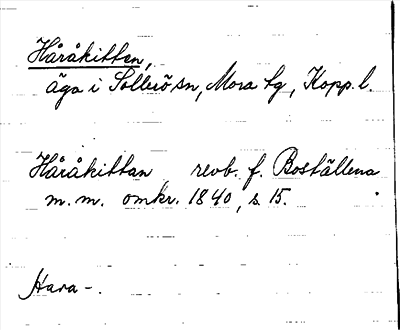 Håråkitten,
äga i Sollerö sn, Mora tg, Kopp. l.
Håråkittan revb. f. Boställena
m. m. omkr. 1840, s. 15.
Hara-.